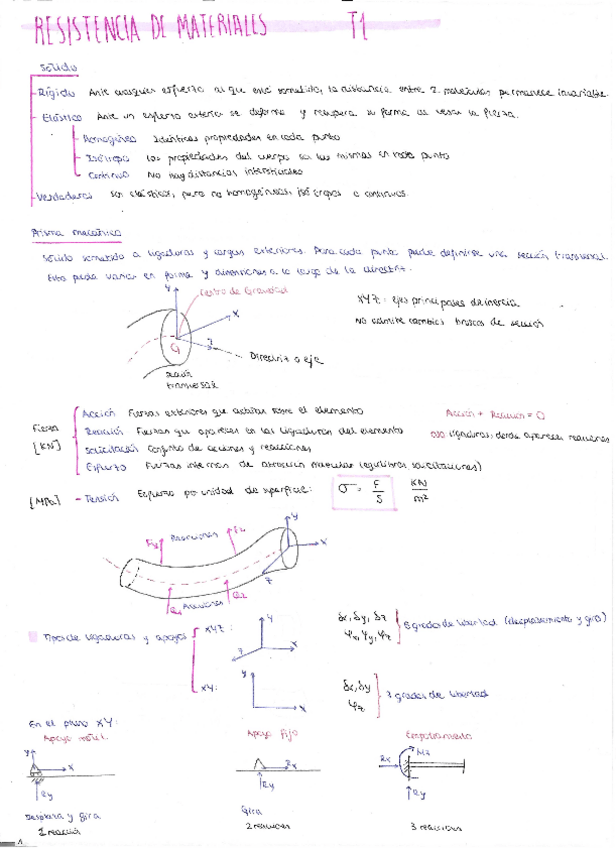 RESISTENCIA DE MATERIALES T1
Sólido
Rígido Ante cualquier esfuerzo al que esté sometido, la distancia entre 2 moléculas permanece invariable.
Elástico Ante un esfuerzo exterior se deforma y recupera su forma al cesar la fuerza.
Homogéneo Idénticas propiedades en cada punto
Isótropo Las propiedades del cuerpo son las mismas en todo punto
Continuo No hay distancias intersticiales
Verdaderos Son elásticos, pero no homogéneos, isótropos o continuos.
Prisma mecánico
Sólido sometido a ligaduras y cargas exteriores. Para cada punto puede definirse una sección transversal.
Esta puede variar en forma y dimensiones a lo largo de la directriz.
Y
Centro de Gravedad
X
XYZ: ejes principales de inercia
No admite cambios bruscos de sección
G
Z
Directriz o eje
transversal
Fuerza
[KN]
Acción Fuerzas exteriores que actúan sobre el elemento
Acción + Reacción = 0
Reacción Fuerzas que aparecen en las ligaduras del elemento
ligaduras, donde aparecen reacciones
Solicitación Conjunto de acciones y reacciones
Esfuerzo Fuerzas internas de atracción molecular (equilibran solicitaciones)
[MPa] - Tensión Esfuerzo por unidad de superficie: σ = F/S KN/m²
Reacciones
Y
X
Z
Q2
Acciones
Tipos de ligaduras y apoyos
XYZ:
Y
X
Z
δx, δy, δz
φx, φy, φz
6 grados de libertad (desplazamiento y giro)
XY:
Y
X
δx, δy
φz
3 grados de libertad
En el plano XY:
Apoyo móvil
Apoyo fijo
Empotramiento
Y
X
Ry
Rx
Ry
Rx
Mz
Ry
Desplaza y gira
1 reacción
Gira
2 reacciones
3 reacciones